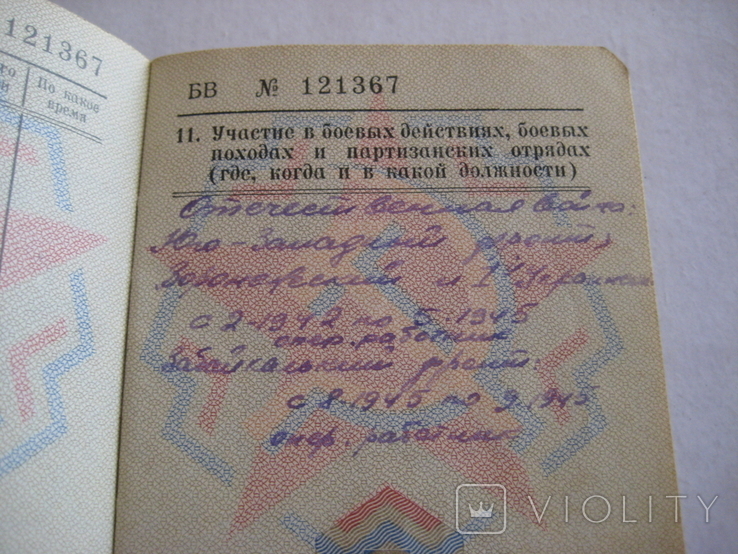 121367
По какое
время
БВ № 121367
11. Участие в боевых действиях, боевых
походах и партизанских отрядах
(где, когда и в какой должности)
Отечественная война:
Юго-Западный фронт,
Воронежский и 1й Украинский
с 2-1942 по 5-1945
опер. работник
Забайкальский фронт:
с 8-1945 по 9.1945
опер. работник
VIOLITY